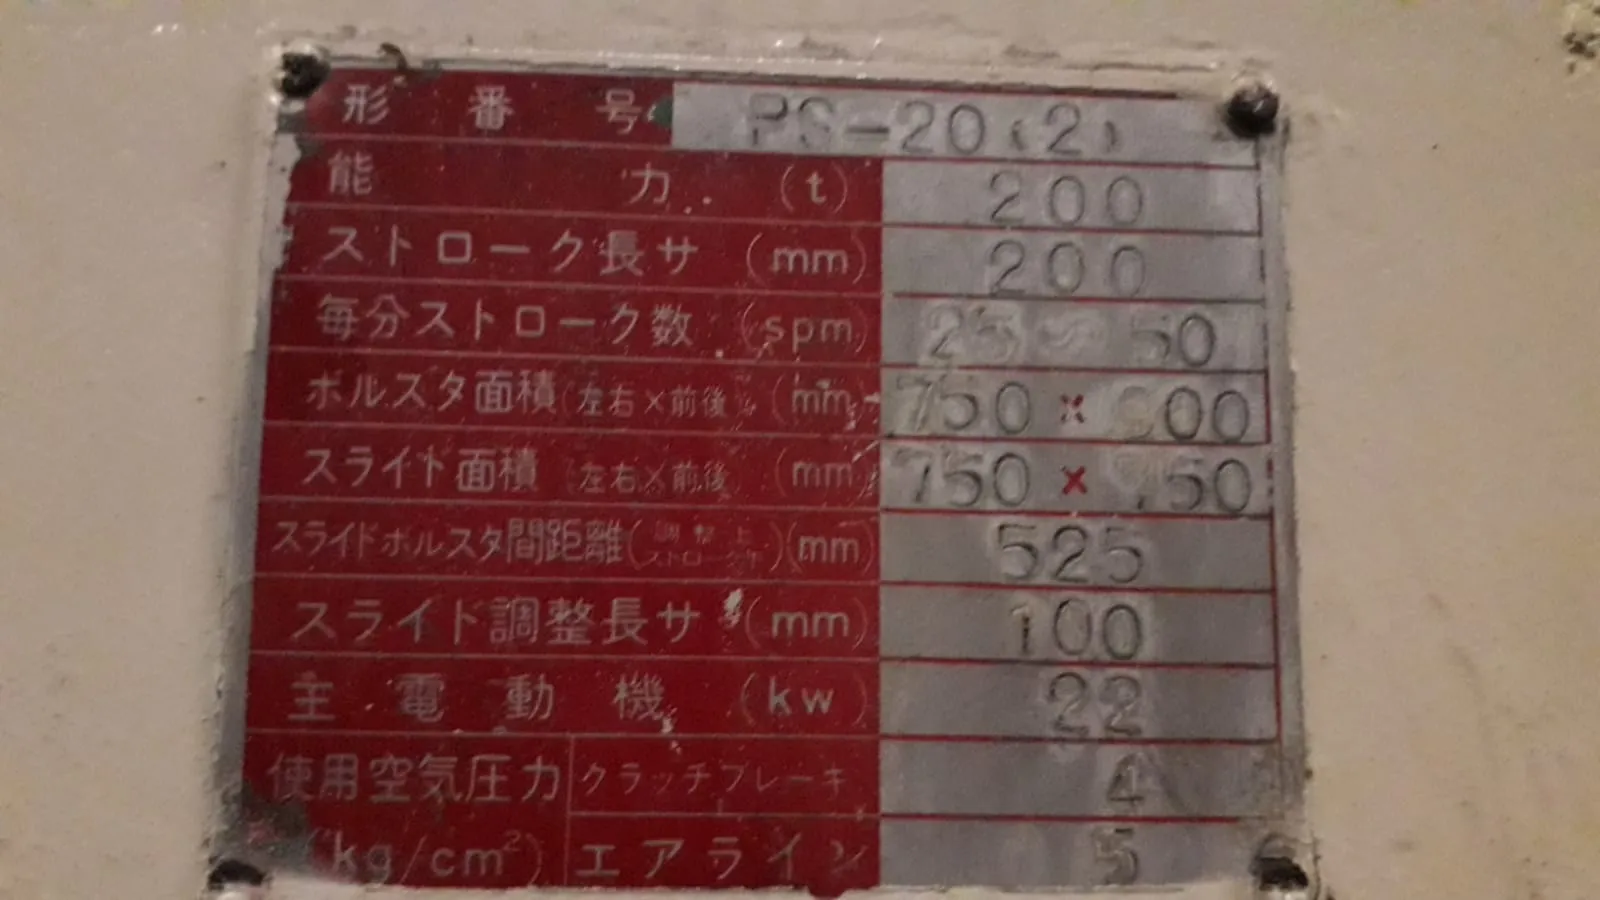 形番号 PS-20(2)
能力(t) 200
ストローク長サ(mm) 200
毎分ストローク数(spm) 25〜50
ボルスタ面積(左右×前後)(mm) 750×
スライド面積(左右×前後)(mm) 750×
スライドボルスタ間距離(調整上ストローク下)(mm) 525
スライド調整長サ(mm) 100
主電動機(kw) 22
使用空気圧力 クラッチブレーキ 4
(kg/cm²) エアライン 5